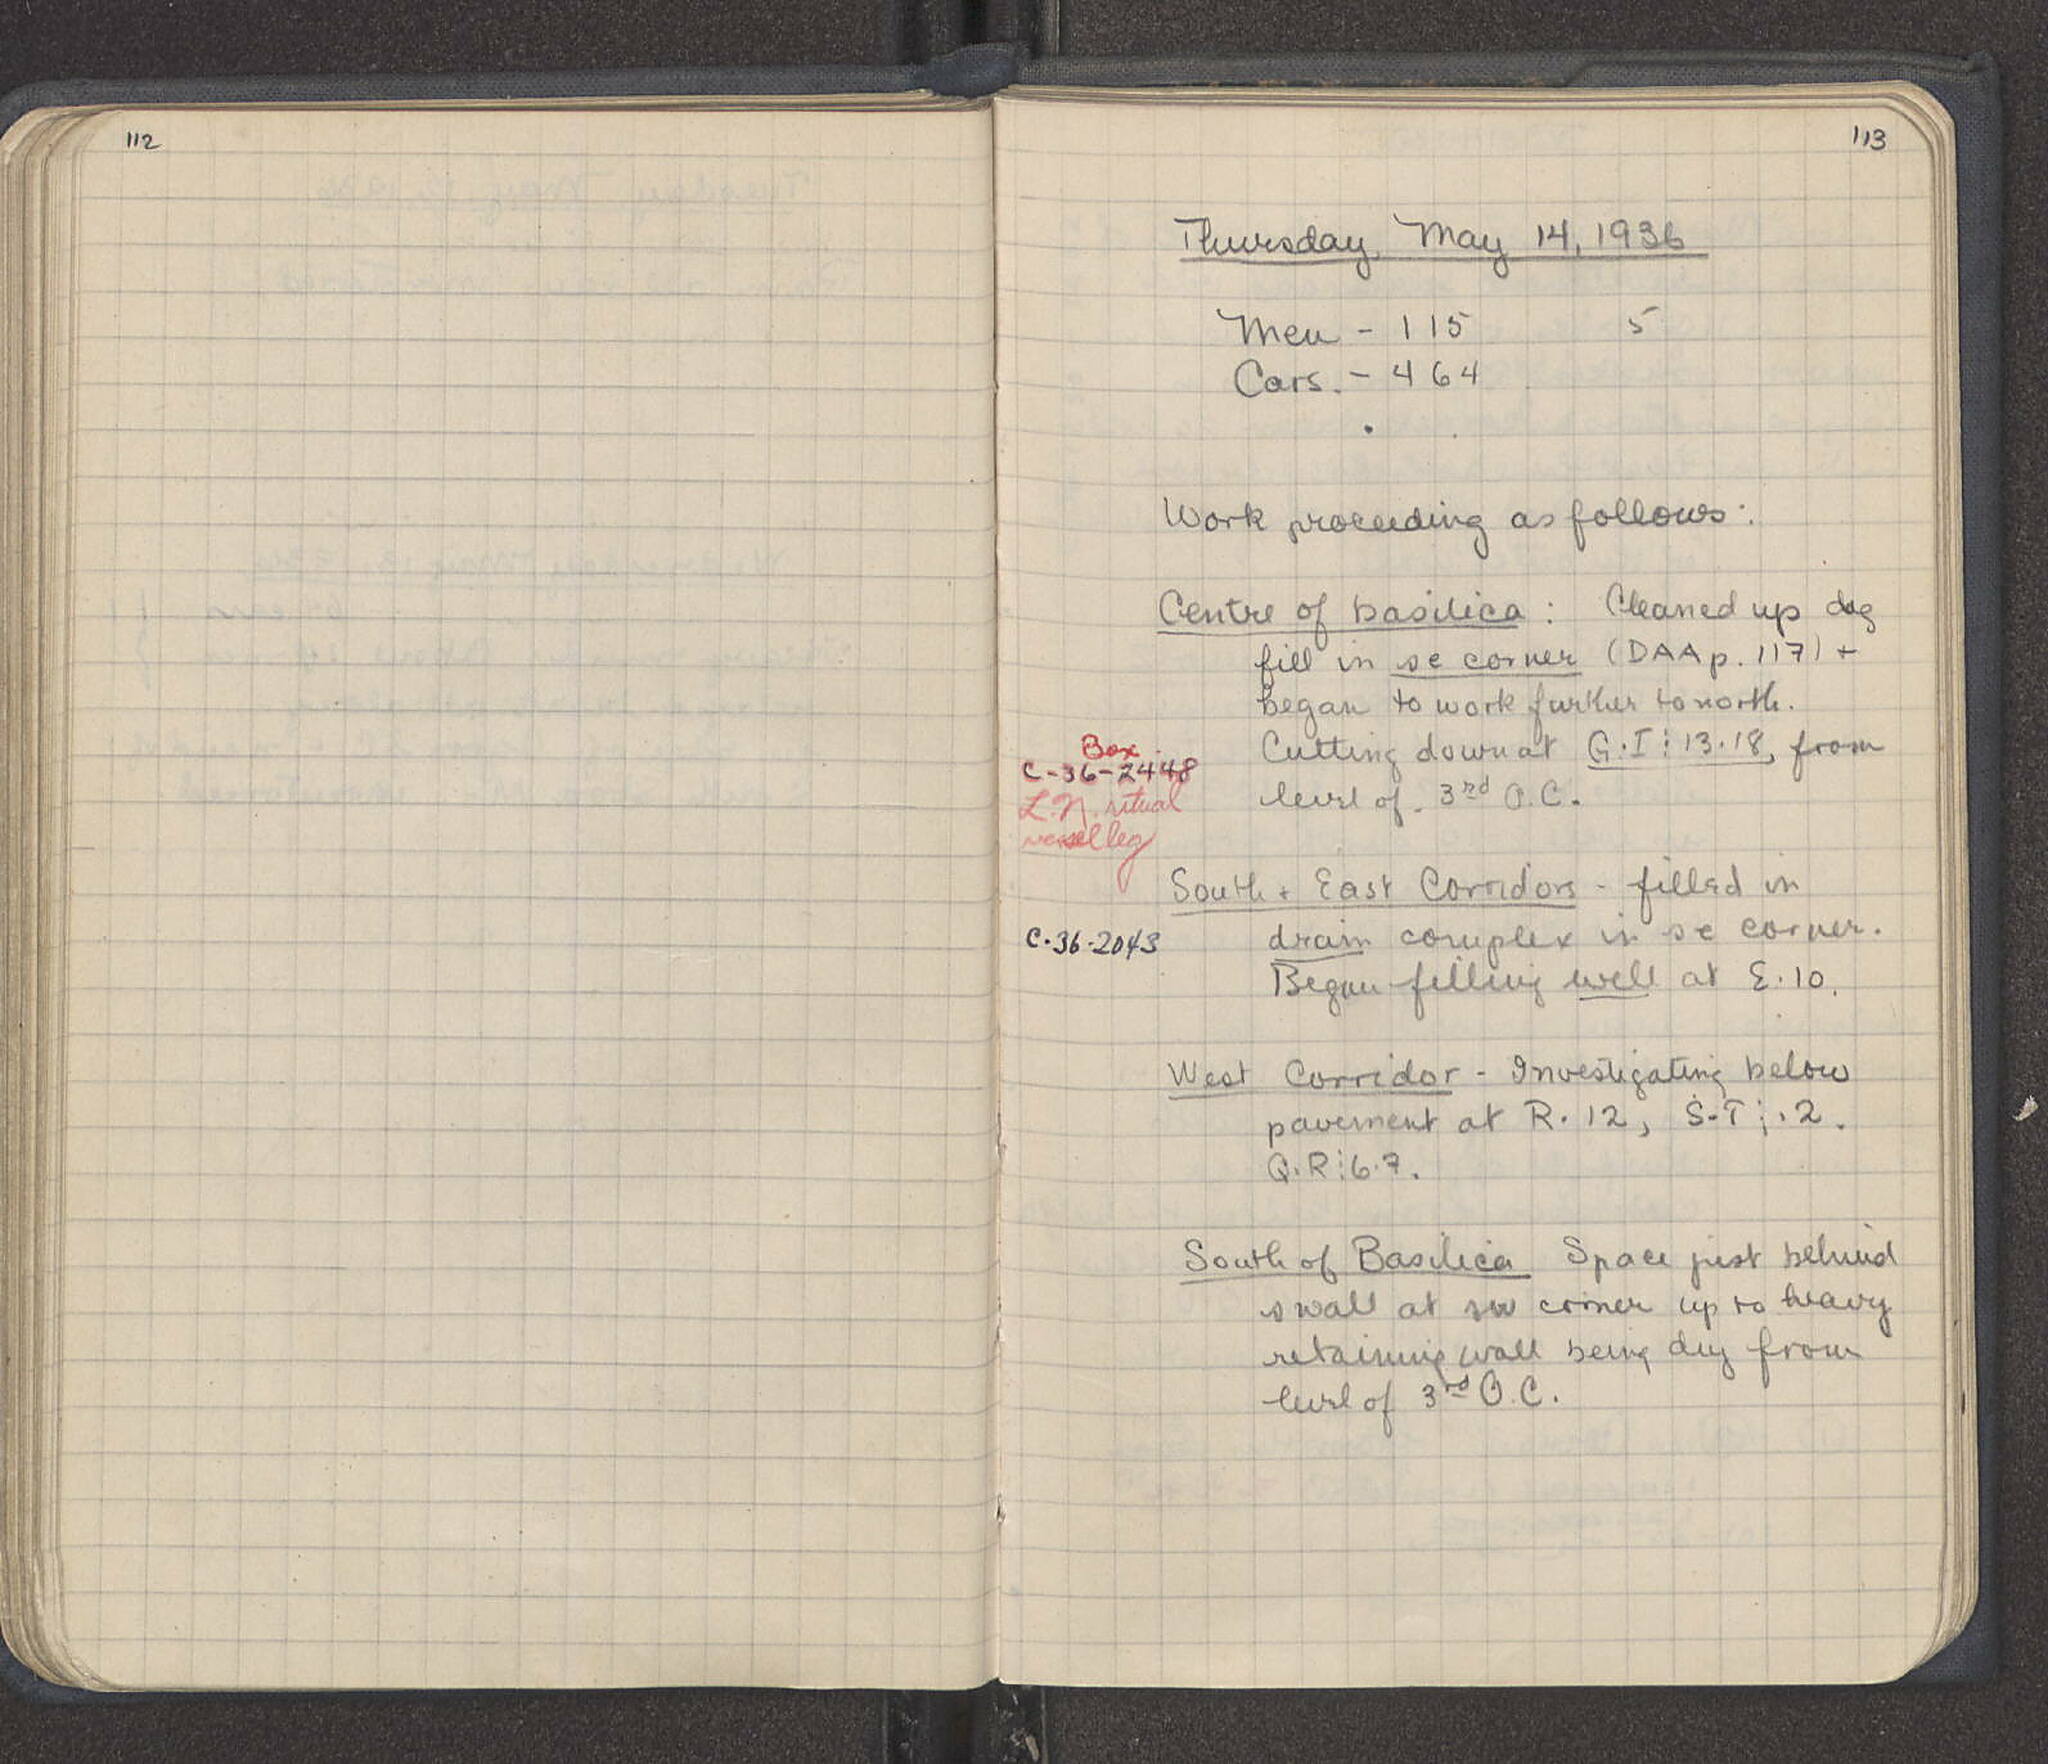 112
113
Thursday, May 14, 1936
Men - 115 5
Cars. - 464
Work proceeding as follows:
Centre of basilica : Cleaned up dog
fill in se corner (DAA p. 117) +
began to work further to north.
Cutting down at G·I⋮13·18, from
level of 3rd O.C.
Box
C-36-2448
L.N. ritual
vessel leg
South + East Corridors - filled in
drain complex in se corner.
Began filling well at E·10.
C·36·2043
West Corridor - Investigating below
pavement at R·12, S-T⋮·2.
Q·R⋮6·7.
South of Basilica Space just behind
s wall at sw corner up to heavy
retaining wall being dug from
level of 3rd O.C.